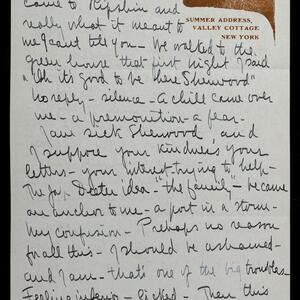 came to Ripshin and
really what it meant to
SUMMER ADDRESS,
VALLEY COTTAGE
NEW YORK
me I cant tell you - We walked to the
green house that first night I said
"Oh its good to be here Sherwood"
No reply - silence - A chill came over
me - a premonition - a fear -
I am sick Sherwood and
I suppose your kindness your
letters - your interest - trying to help -
The idea - "the family" - became
an anchor to me - a port in a storm -
my confusion - Perhaps no reason
for all this - I should be ashamed -
and I am - that's one of the big troubles -
Feeling inferior - licked - Then this